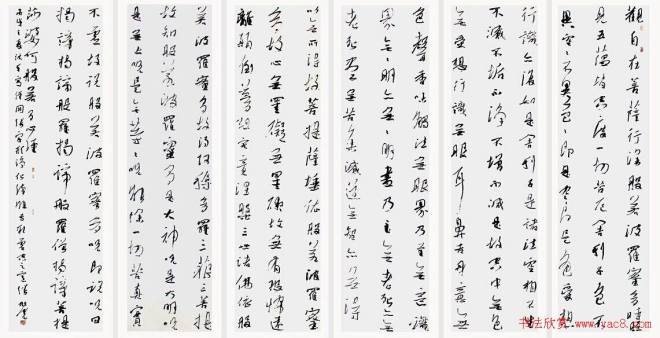 觀自在菩薩行深般若波羅蜜多時照
見五蘊皆空度一切苦厄舍利子色不
異空空不異色色即是空空即是色受想
行識亦復如是舍利子是諸法空相不生
不滅不垢不淨不增不減是故空中無色
無受想行識無眼耳鼻舌身意無
色聲香味觸法無眼界乃至無意識
界無無明亦無無明盡乃至無老死亦無
老死盡無苦集滅道無智亦無得
以無所得故菩提薩埵依般若波羅蜜
多故心無罣礙無罣礙故無有恐怖遠
離顛倒夢想究竟涅槃三世諸佛依般
若波羅蜜多故得阿耨多羅三藐三菩提
故知般若波羅蜜多是大神咒是大明咒
是無上咒是無等等咒能除一切苦真實
不虛故說般若波羅蜜多咒即說咒曰
揭諦揭諦般羅揭諦般羅僧揭諦菩提
薩婆訶般若心經
书法欣赏www.yac8.com